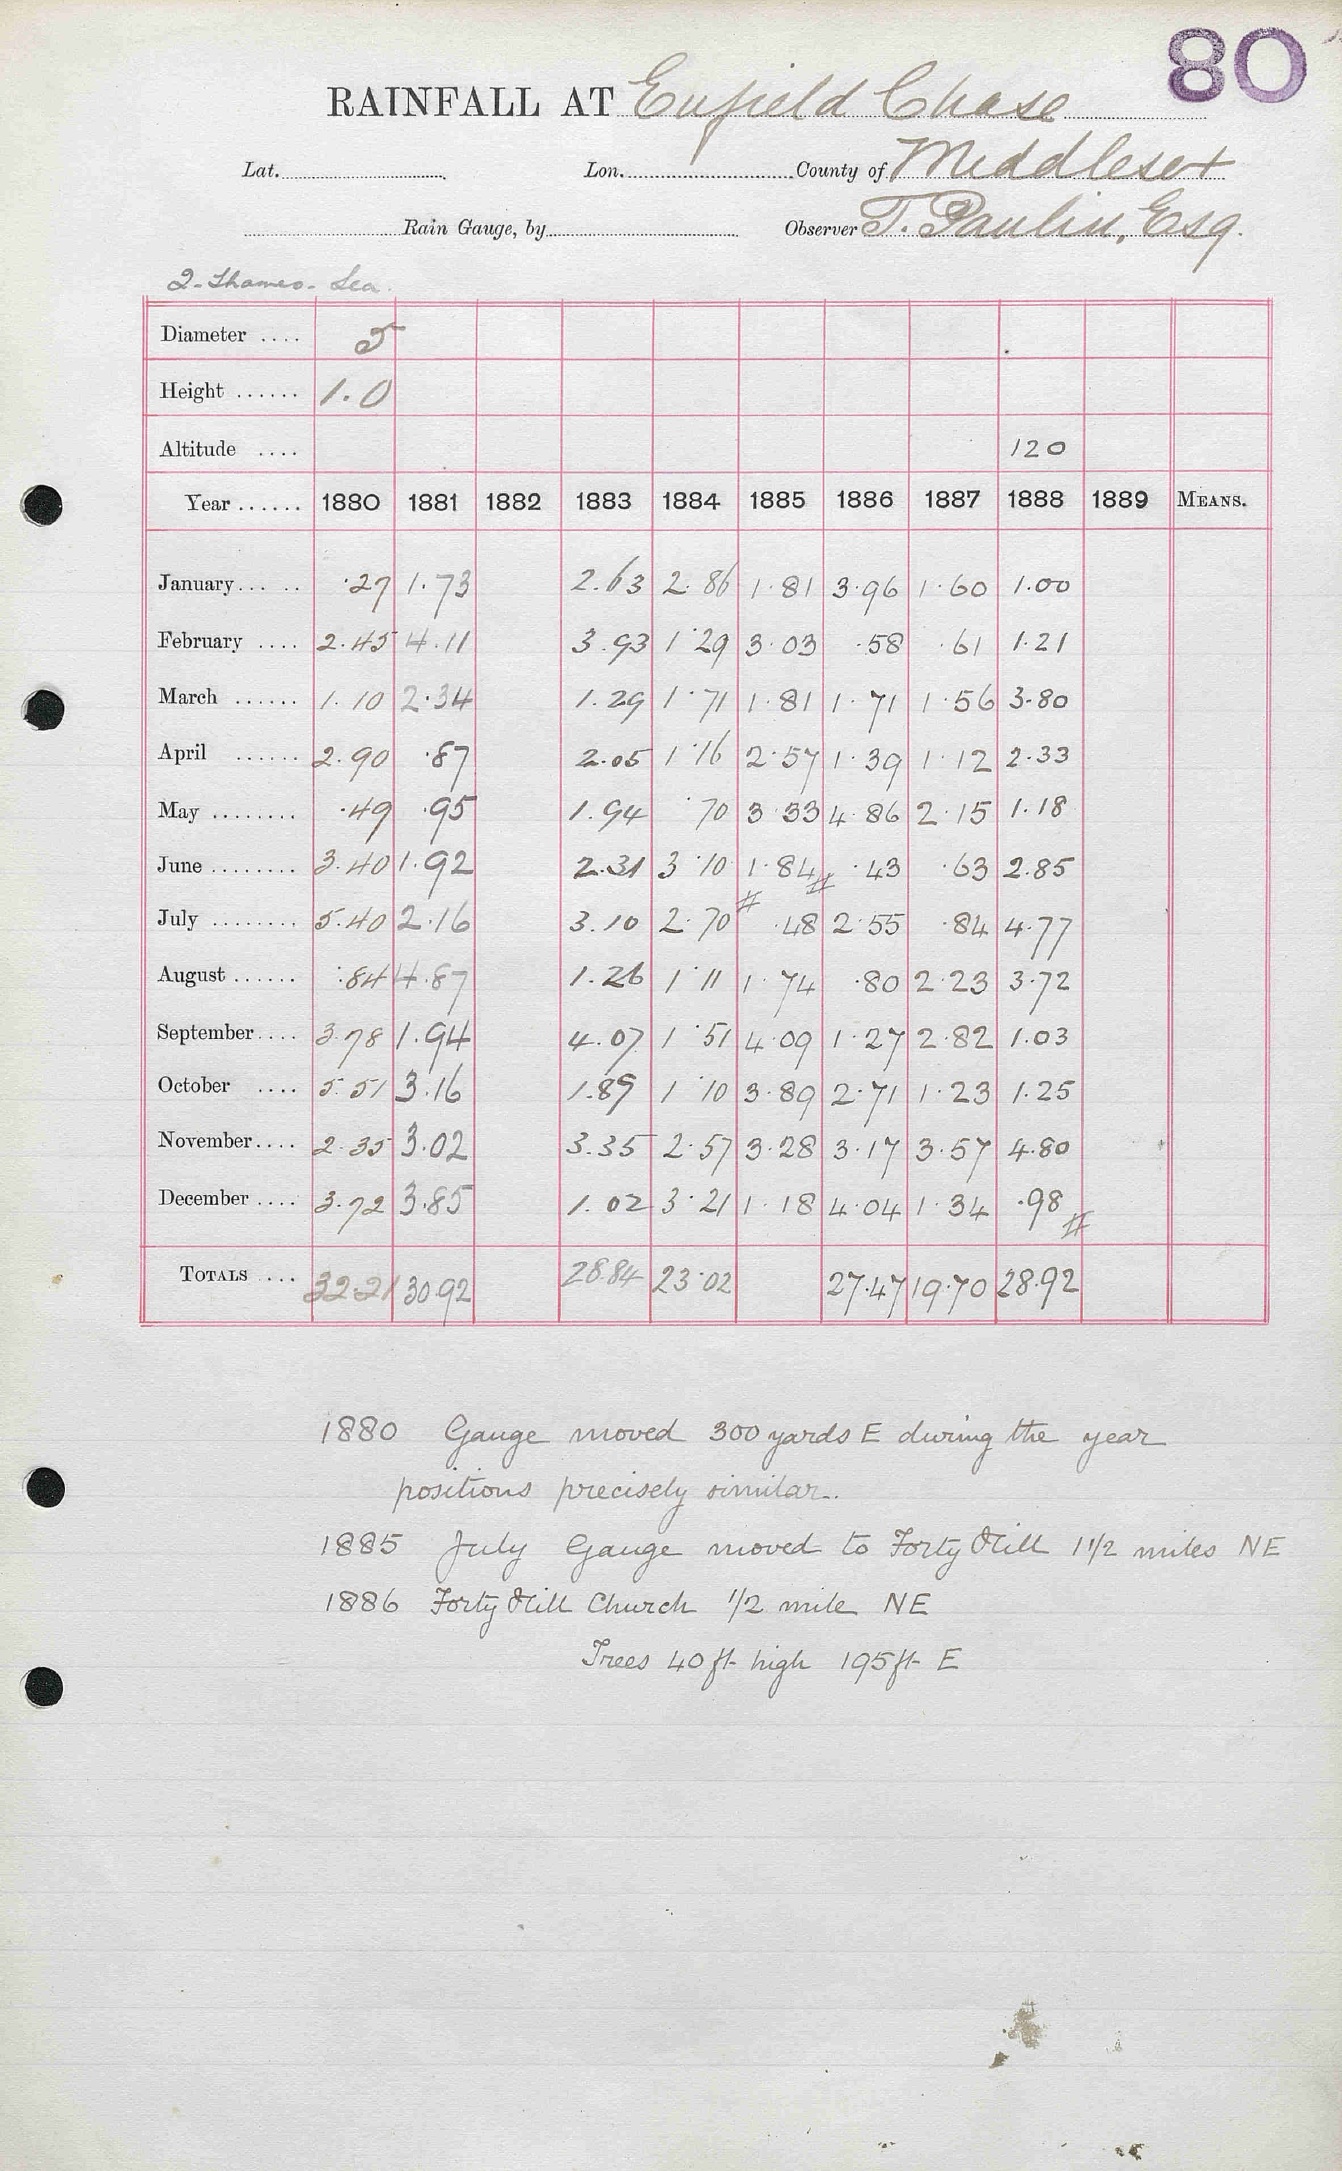 80
RAINFALL AT Enfield Chase
Lat. Lon. County of Middlesex
Rain Gauge, by Observer T. Paulin, Esq.
2 - Thames - Lea.
Diameter .... 5
Height ...... 1.0
Altitude .... 120
Year ...... 1880 1881 1882 1883 1884 1885 1886 1887 1888 1889 MEANS.
January... .. .27 1.73 2.63 2.86 1.81 3.96 1.60 1.00
February .... 2.45 4.11 3.93 1.29 3.03 .58 .61 1.21
March ...... 1.10 2.34 1.29 1.71 1.81 1.71 1.56 3.80
April ...... 2.90 .87 2.05 1.16 2.57 1.39 1.12 2.33
May ........ .49 .95 1.94 .70 3.33 4.86 2.15 1.18
June ........ 3.40 1.92 2.31 3.10 1.84 .43 .63 2.85
July ........ 5.40 2.16 3.10 2.70 .48 2.55 .84 4.77
August ...... .84 4.87 1.26 1.11 1.74 .80 2.23 3.72
September.... 3.78 1.94 4.07 1.51 4.09 1.27 2.82 1.03
October .... 5.51 3.16 1.89 1.10 3.89 2.71 1.23 1.25
November.... 2.35 3.02 3.35 2.57 3.28 3.17 3.57 4.80
December .... 3.72 3.85 1.02 3.21 1.18 4.04 1.34 .98
TOTALS ... 32.21 30.92 28.84 23.02 27.47 19.70 28.92
1880 Gauge moved 300 yards E during the year
positions precisely similar.
1885 July Gauge moved to Forty Hill 1 1/2 miles NE
1886 Forty Hill Church 1/2 mile NE
Trees 40 ft high 195 ft E